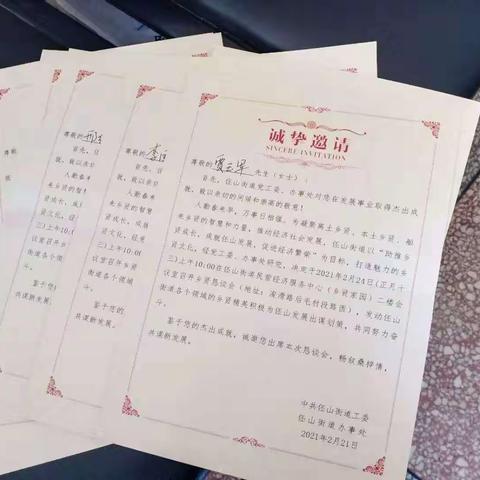 诚挚邀请
SINCERE INVITATION
尊敬的 先生(女士):
首先,任山街道党工委、办事处对您在发展事业取得杰出成
就,致以亲切的问候和崇高的敬意!
人勤春来早,万事日相催。为凝聚离土乡贤、本土乡贤、
来乡贤的智慧和力量,推动经济社会发展,任山街道以“助推乡
贤成长,成就任山发展,促进经济繁荣”为目标,打造魅力的乡
贤文化,经党工委、办事处研究,决定于2021年2月24日(正月十
三)上午10:00在任山街道民营经济服务中心(乡贤家园)二楼会
议室召开乡贤恳谈会(地址:凌湾路后毛村段路西),发动任山
街道各个领域的乡贤精英积极为任山发展出谋划策,共同努力奋
斗。
鉴于您的杰出成就,诚邀您出席本次恳谈会,畅叙桑梓情,
共谋新发展。
中共任山街道工委
任山街道办事处
2021年2月21日
尊敬的
首先,任
就,致以亲切
人勤春来
来乡贤的智慧
贤成长,成就
贤文化,经党
三)上午10:00
议室召开乡
街道各个领
斗。
鉴于您
共谋新发展
尊敬的
首先,
就,致以亲
人勤春
来乡贤的智
贤成长,
贤文化,经
三)上午10
议室召开
街道各个领
斗。
鉴于
共谋新发